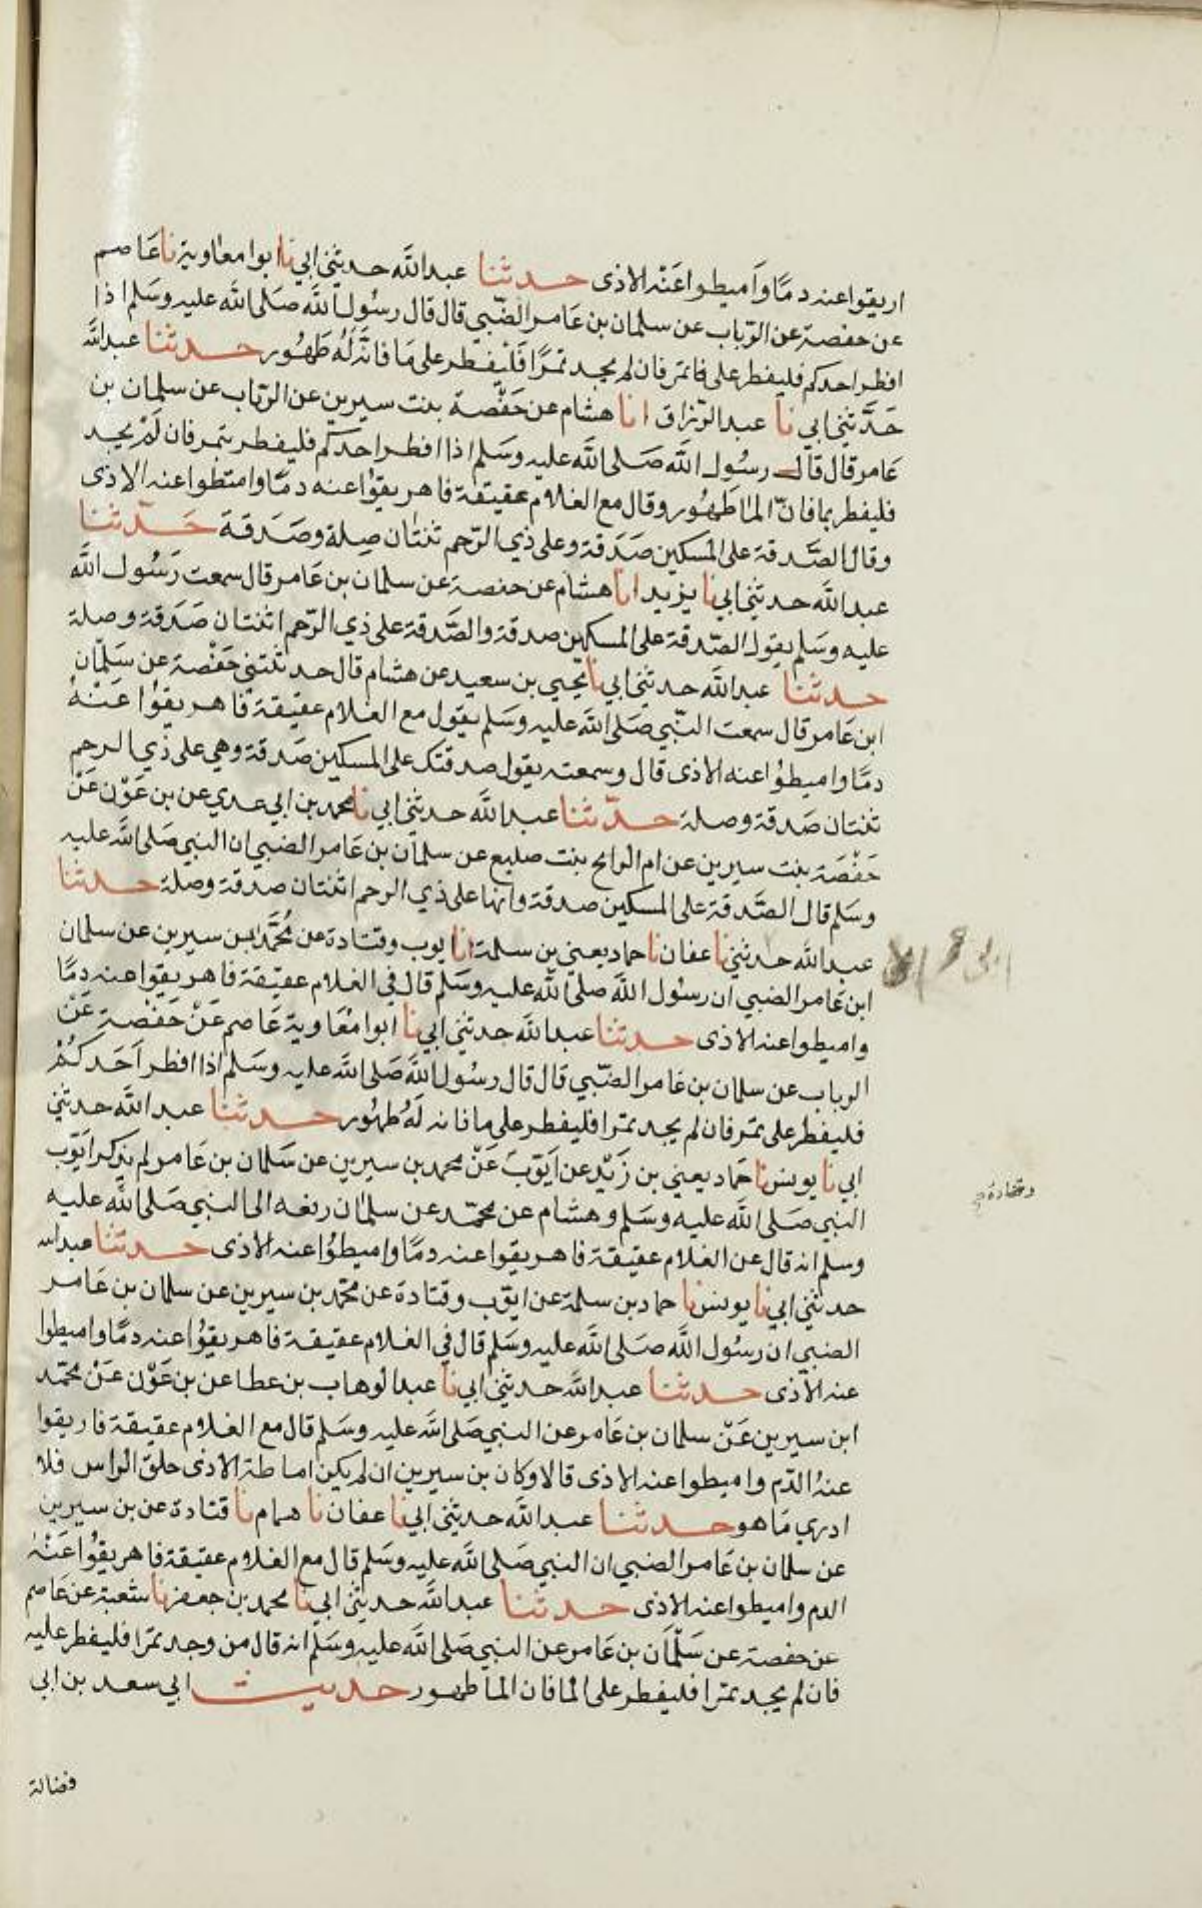 اريقوا عنه دمًا وَاميطوا عَنْه الاذى حدثنا عبد الله حدثني ابي نا ابوا معاوية نا عَاصم
عن حفصة عن الرّباب عن سلمان بن عَامر الضّبي قال قال رسُول الله صَلى الله عليه وسَلم اذا
افطر احدكم فليفطر على تمر فان لم يجد تمرًا فَلْيفطر على مَا فانّه لَهُ طَهُور حدثنا عبد الله
حَدَّثني ابي نا عبد الرّزاق انا هشام عن حَفْصة بنت سيرين عن الربّاب عن سلمان بن
عَامر قال قال رسُول الله صَلى الله عليه وسَلم اذا افطر احدكم فليفطر بتمر فان لَمْ يجد
فليفطر بما فانّ الما طَهُور وقال مع الغلام عقيقة فاهريقوا عنه دمًا وامتطوا عنه الاذى
وقال الصَّدقة على المسكين صَدَقة وعلى ذي الرّحم ثنتان صِلة وصَدَقة حَدّثنا
عبد الله حدثني ابي نا يزيد انا هشام عن حفصة عن سلمان بن عَامر قال سمعت رَسُول الله
عليه وسَلم يقول الصّدقة على المسكين صدقة والصَّدقة على ذي الرّحم اثنتان صَدَقة وصلة
حدثنا عبد الله حدثني ابي نا يحيى بن سعيد عن هشام قال حدثتني حَفْصة عن سَلمان
ابن عَامر قال سمعت النّبي صَلى الله عليه وسَلم يقول مع الغلام عقيقة فاهريقوا عَنْهُ
دمًا واميطوا عنه الاذى قال وسمعته يقول صدقتك على المسكين صَدقة وهي على ذي الرحم
ثنتان صَدقة وصلة حدّثنا عبد الله حدثني ابي نا محمد بن ابي عدي عن بن عَوْن عَنْ
حَفْصَة بنت سيرين عن ام الرايح بنت صليع عن سلمان بن عَامر الضبي ان النبي صَلى الله عليه
وسَلم قال الصَّدقة على المسكين صدقة وانها على ذي الرحم اثنتان صدقة وصلة حدثنا
عبد الله حدثني نا عفان نا حماد يعني بن سلمة انا ايوب وقتادة عن مُحمَّد بن سيرين عن سلمان
ابن عَامر الضبي ان رسُول الله صلى الله عليه وسَلم قال في الغلام عقيقة فاهريقوا عنه دمًا
واميطوا عنه الاذى حدثنا عبد الله حدثني ابي نا ابوا مُعَاوية عَاصم عَنْ حَفْصة عَنْ
الرباب عن سلمان بن عَامر الضّبي قال قال رسُول الله صَلى الله عليه وسَلم اذا افطر اَحَدكُمْ
فليفطر على تمر فان لم يجد تمرا فليفطر على ما فانه لَهُ طهُور حدثنا عبد الله حدثني
ابي نا يونس نا حمَاد يعني بن زَيْد عن اَيّوبَ عَنْ محمد بن سيرين عن سَلمان بن عَامر لم يذكر ايّوب
النبي صَلى الله عليه وسَلم وهشام عن محمّد عن سلمان رفعه الى النبي صَلى الله عليه
وسلم انه قال عن الغلام عقيقة فاهريقوا عنه دمًا واميطوُا عنه الاذى حدثنا عبد الله
حدثني ابي نا يونس نا حماد بن سلمة عن ايّوب وقتادة عن محمّد بن سيرين عن سلمان بن عَامر
الضبي ان رسُول الله صَلى الله عليه وسَلم قال في الغلام عقيقة فاهريقوُا عنه دمًا واميطوا
عنه الاَذى حدثنا عبد الله حدثني ابي نا عبد الوهاب بن عطا عن بن عَوْن عَنْ محمّد
ابن سيرين عَنْ سلمان بن عَامر عن النبي صَلى الله عليه وسَلم قال مع الغلام عقيقة فاريقوا
عنهُ الدّم واميطوا عنه الاذى قالا وكان بن سيرين ان لم يكن اماطة الاذى حلق الراس فلا
ادري مَا هو حدثنا عبد الله حدثني ابي نا عفان نا همام نا قتادة عن بن سيرين
عن سلمان بن عَامر الضبي ان النبي صَلى الله عليه وسَلم قال مع الغلام عقيقة فاهريقُوا عَنْهُ
الدم واميطوا عنه الاذى حدثنا عبد الله حدثني ابي نا محمد بن جعفر نا شعبة عن عَاصم
عن حفصة عن سَلمَان بن عَامر عن النبي صَلى الله عليه وسَلم انه قال من وجد تمرًا فليفطر عليه
فان لم يجد تمرا فليفطر على الما فان الما طهور حديث ابي سعد بن ابي
وقتادة صح
فضالة